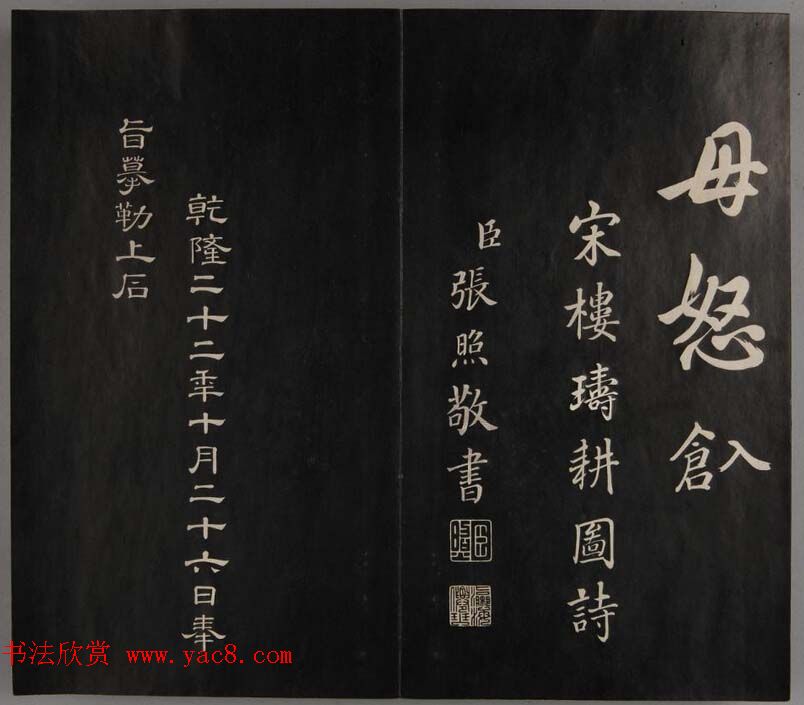 母怒 入倉
宋樓璹耕圖詩
臣張照敬書
乾隆二十二年十月二十六日奉
旨摹勒上石
书法欣赏 www.yac8.com